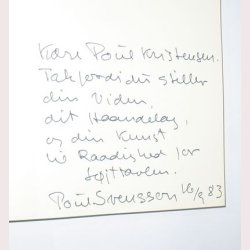 Kære Poul Kristensen.
Tak fordi du stiller
din Viden,
dit Haandelag,
og din Kunst
til Raadighed for
Højttaleren.
Poul Svensson 16/9 83